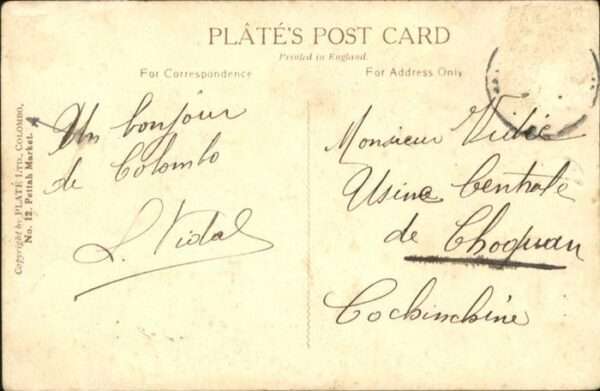 PLÂTÉ'S POST CARD
Printed in England.
For Correspondence
For Address Only
Copyright by PLATÉ LTD., COLOMBO.
No. 12. Pettah Market.
Un bonjour
de Colombo
L. Vidal
Monsieur
Usine Centrale
de Choquan
Cochinchine